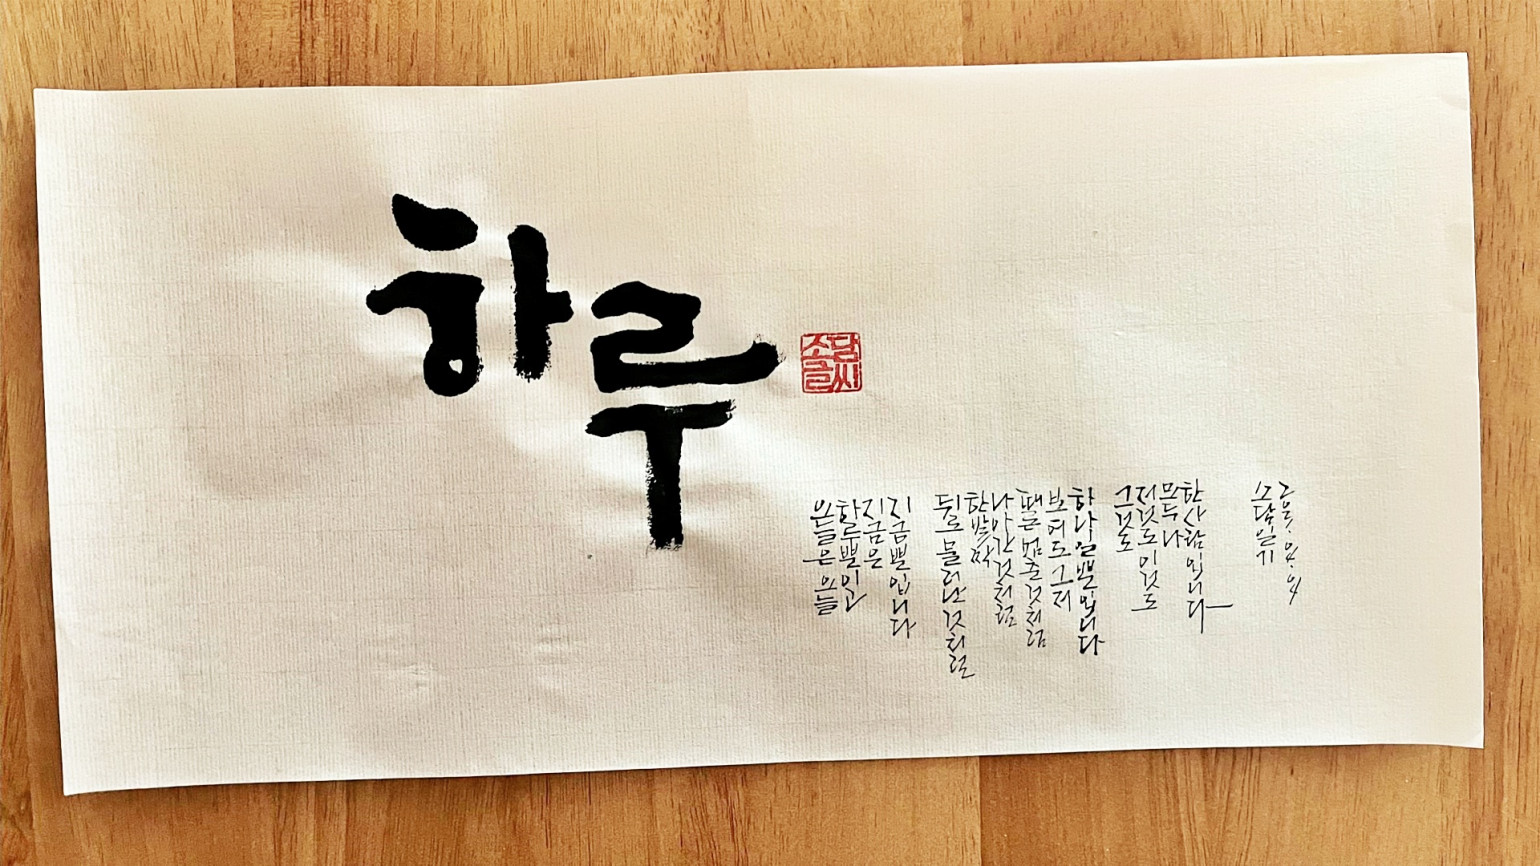 하루
소담
글씨
오늘은 오늘
하루뿐이고
지금은
지금뿐입니다
뒤로 물러난 것처럼
한발짝
나아간 것처럼
때론 멈춘 것처럼
보여도 그저
하나일 뿐입니다
그것도
저것도 이것도
모두 나
한 사람입니다
소담일기